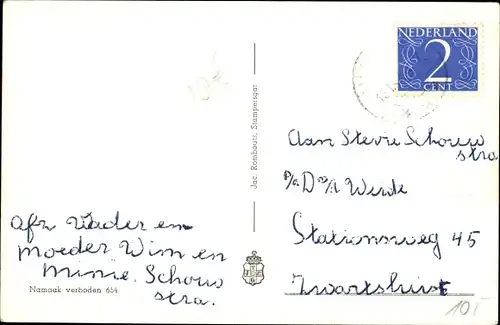 NEDERLAND
2
CENT
Jac. Rombouts, Stampersgat
Aan Stevie Schouw
stra
p/a D v/d Werde
Stationsweg 45
Zwartsluis
Afz Vader en
moeder Wim en
Minie. Schouw
stra.
Namaak verboden 654
10,-